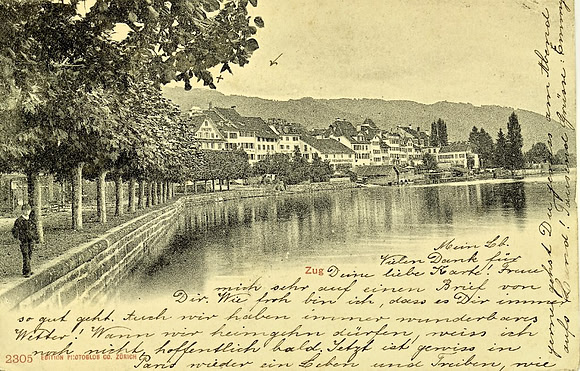 Zug
Mein Lb.
Vielen Dank für
Deine liebe Karte! Freue
mich sehr auf einen Brief von
Dir. Wie froh bin ich, dass es Dir immer
so gut geht. Auch wir haben immer wunderbares
Wetter! Wann wir heimgehn dürfen, weiss ich
noch nicht, hoffentlich bald. Jetzt ist gewiss in
Paris wieder ein Leben und Treiben, wie
2305 EDITION PHOTOGLOB CO. ZÜRICH
gewiss selbst Du am Abend
aufs Land! Tausend Grüsse: Emmy